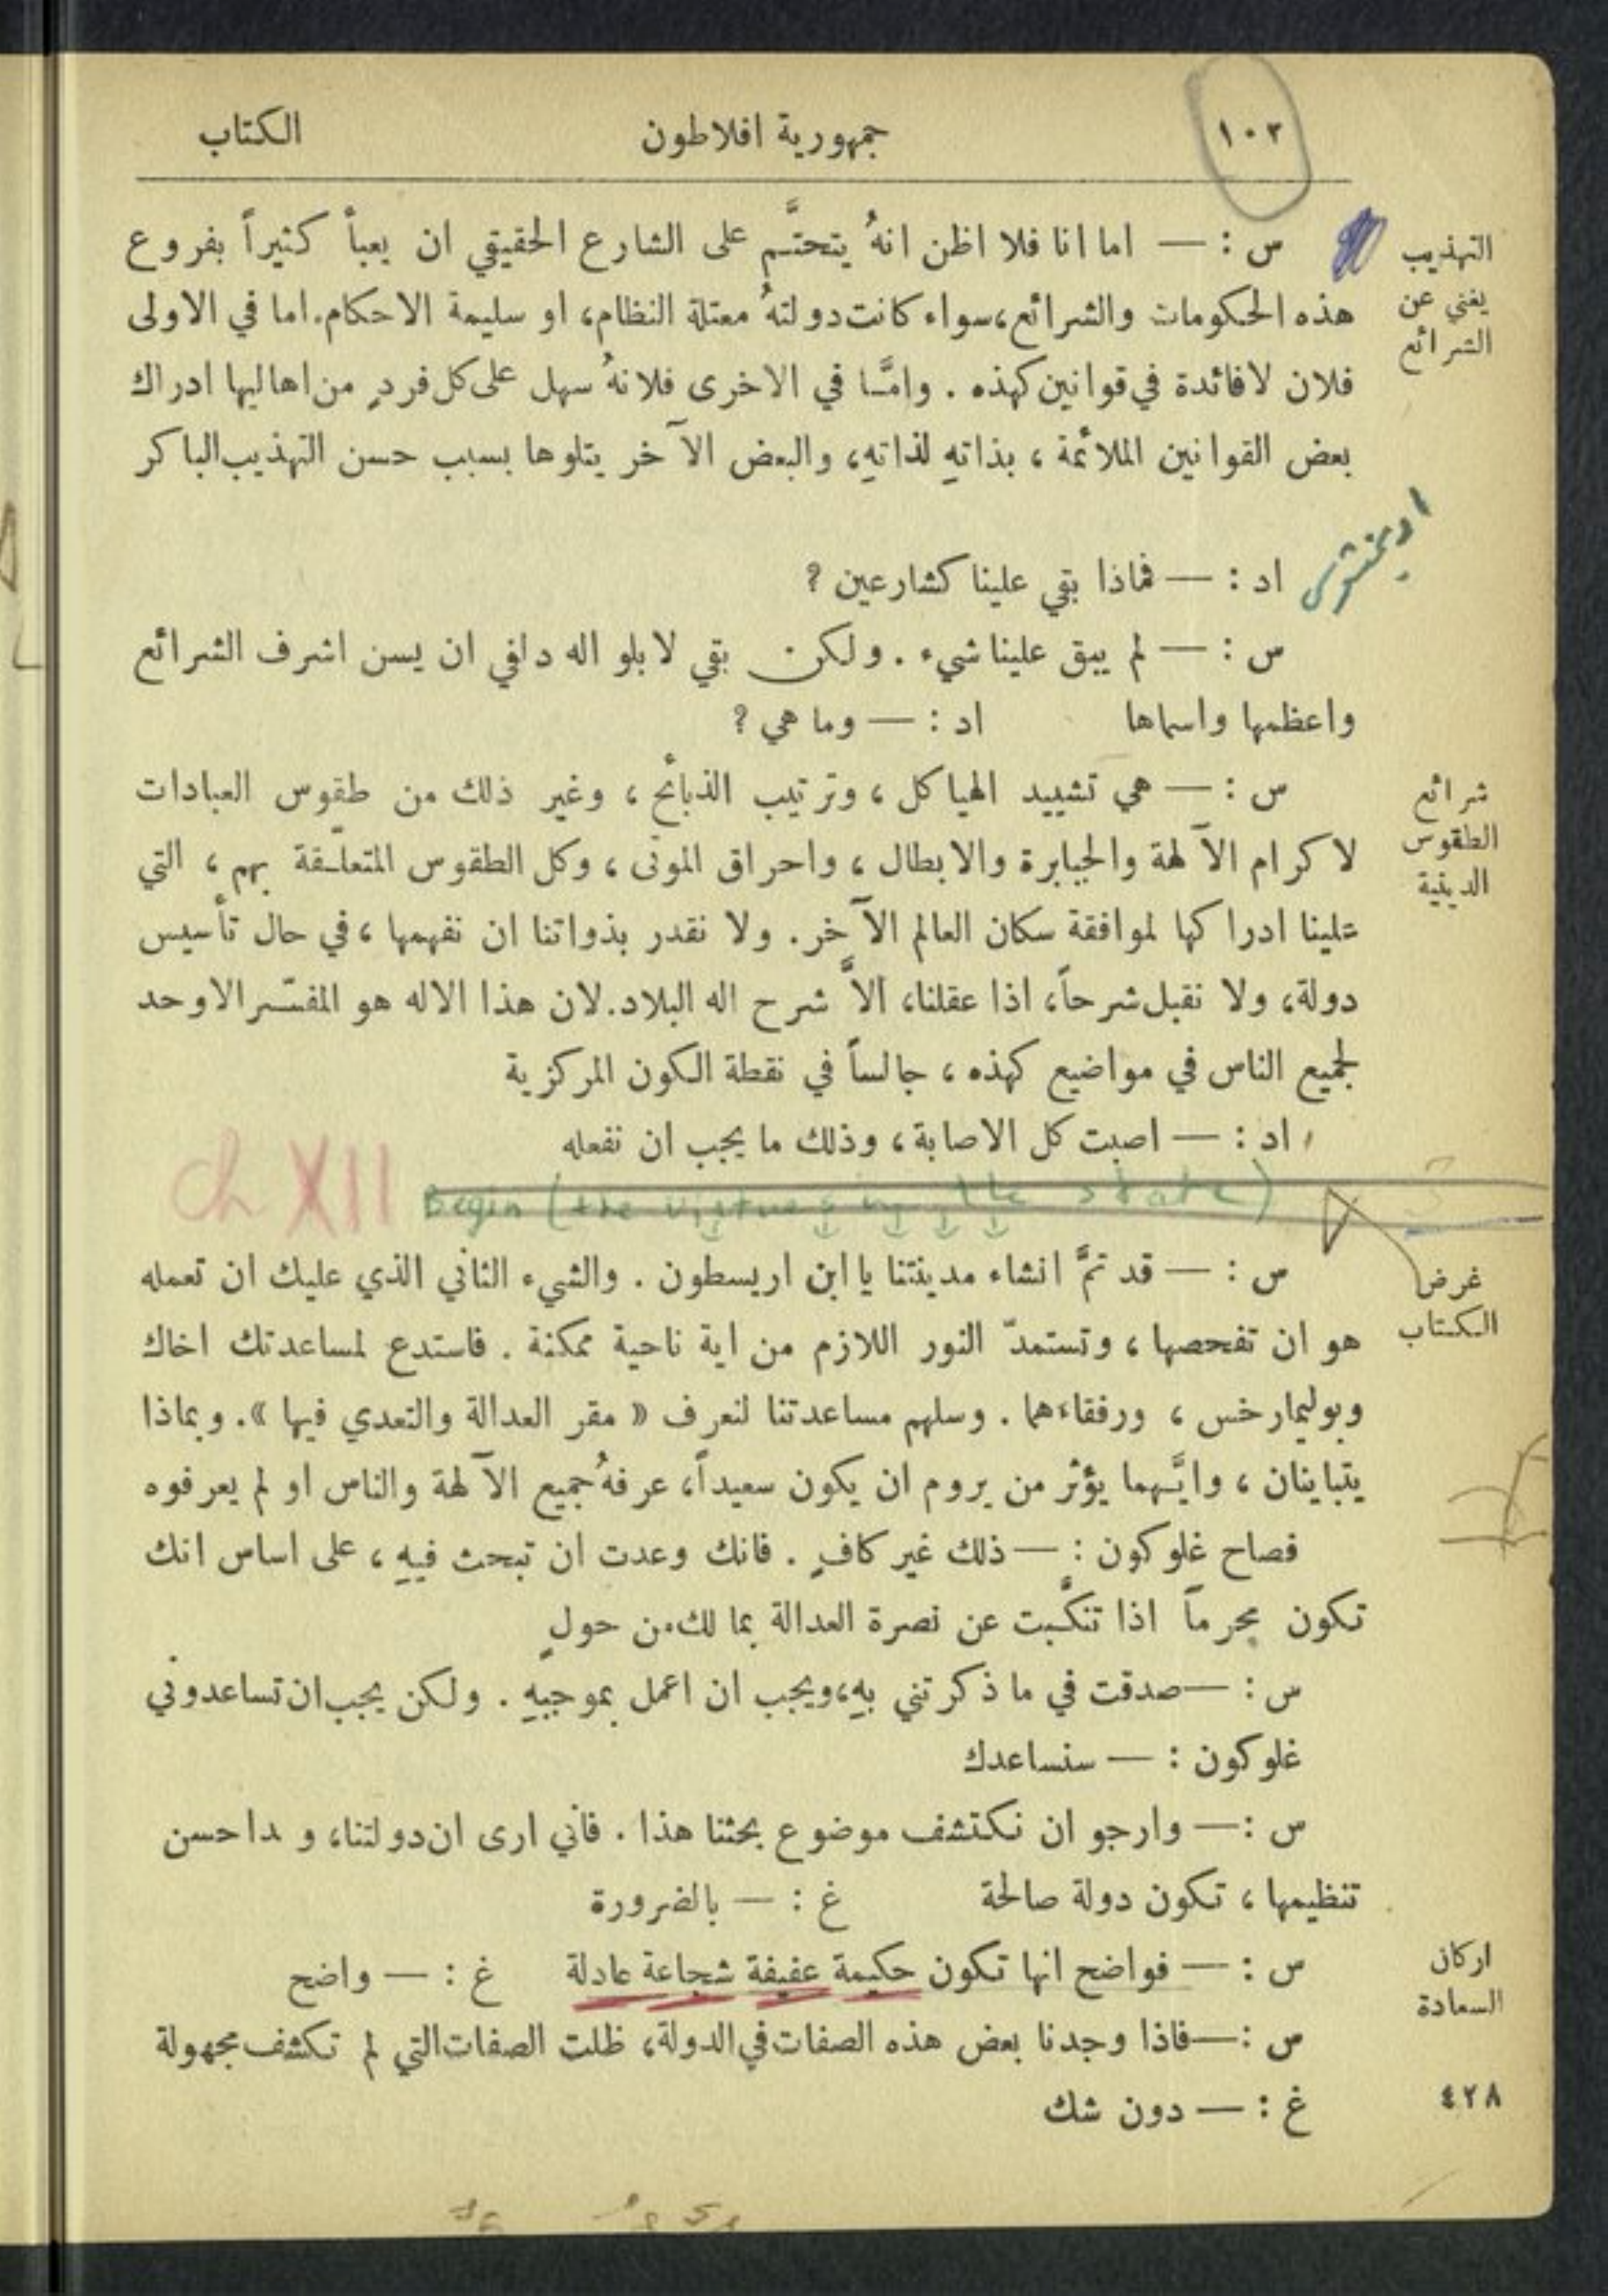 ١٠٢ جمهورية افلاطون الكتاب
التهذيب
يغني عن
الشرائع
س : — اما انا فلا اظن انهُ يتحتَّم على الشارع الحقيقي ان يعبأ كثيراً بفروع
هذه الحكومات والشرائع، سواء كانت دولتهُ معتلة النظام، او سليمة الاحكام. اما في الاولى
فلان لا فائدة في قوانين كهذه . وامَّا في الاخرى فلانهُ سهل على كل فردٍ من اهاليها ادراك
بعض القوانين الملائمة ، بذاتهِ لذاتهِ، والبعض الآخر يتلوها بسبب حسن التهذيب الباكر
اد : — فماذا بقي علينا كشارعين ?
س : — لم يبق علينا شيء . ولكن بقي لابلو اله دلفي ان يسن اشرف الشرائع
واعظمها واسماها اد : — وما هي ?
شرائع
الطقوس
الدينية
س : — هي تشييد الهياكل ، وترتيب الذبائح ، وغير ذلك من طقوس العبادات
لاكرام الآلهة والجبابرة والابطال ، واحراق الموتى ، وكل الطقوس المتعلّقة بهم ، التي
علينا ادراكها لموافقة سكان العالم الآخر. ولا نقدر بذواتنا ان نفهمها ، في حال تأسيس
دولة، ولا نقبل شرحاً، اذا عقلنا، الاَّ شرح اله البلاد. لان هذا الاله هو المفسّر الاوحد
لجميع الناس في مواضيع كهذه ، جالساً في نقطة الكون المركزية
اد : — اصبت كل الاصابة ، وذلك ما يجب ان نفعله
ch XII Begin (the virtues in the state)
غرض
الكتاب
س : — قد تمَّ انشاء مدينتنا يا ابن اريسطون . والشيء الثاني الذي عليك ان تعمله
هو ان تفحصها ، وتستمدّ النور اللازم من اية ناحية ممكنة . فاستدع لمساعدتك اخاك
وبوليمارخس ، ورفقاءهما . وسلهم مساعدتنا لنعرف « مقر العدالة والتعدي فيها ». وبماذا
يتباينان ، وايَّهما يؤثر من يروم ان يكون سعيداً، عرفهُ جميع الآلهة والناس او لم يعرفوه
فصاح غلوكون : — ذلك غير كافٍ . فانك وعدت ان تبحث فيهِ ، على اساس انك
تكون مجرماً اذا تنكَّبت عن نصرة العدالة بما لك من حولٍ
س : — صدقت في ما ذكرتني بهِ، ويجب ان اعمل بموجبهِ . ولكن يجب ان تساعدوني
غلوكون : — سنساعدك
س : — وارجو ان نكتشف موضوع بحثنا هذا . فاني ارى ان دولتنا، و حسن
تنظيمها ، تكون دولة صالحة غ : — بالضرورة
اركان
السعادة
س : — فواضح انها تكون حكيمة عفيفة شجاعة عادلة غ : — واضح
س : — فاذا وجدنا بعض هذه الصفات في الدولة، ظلت الصفات التي لم تكشف مجهولة
٤٢٨
غ : — دون شك